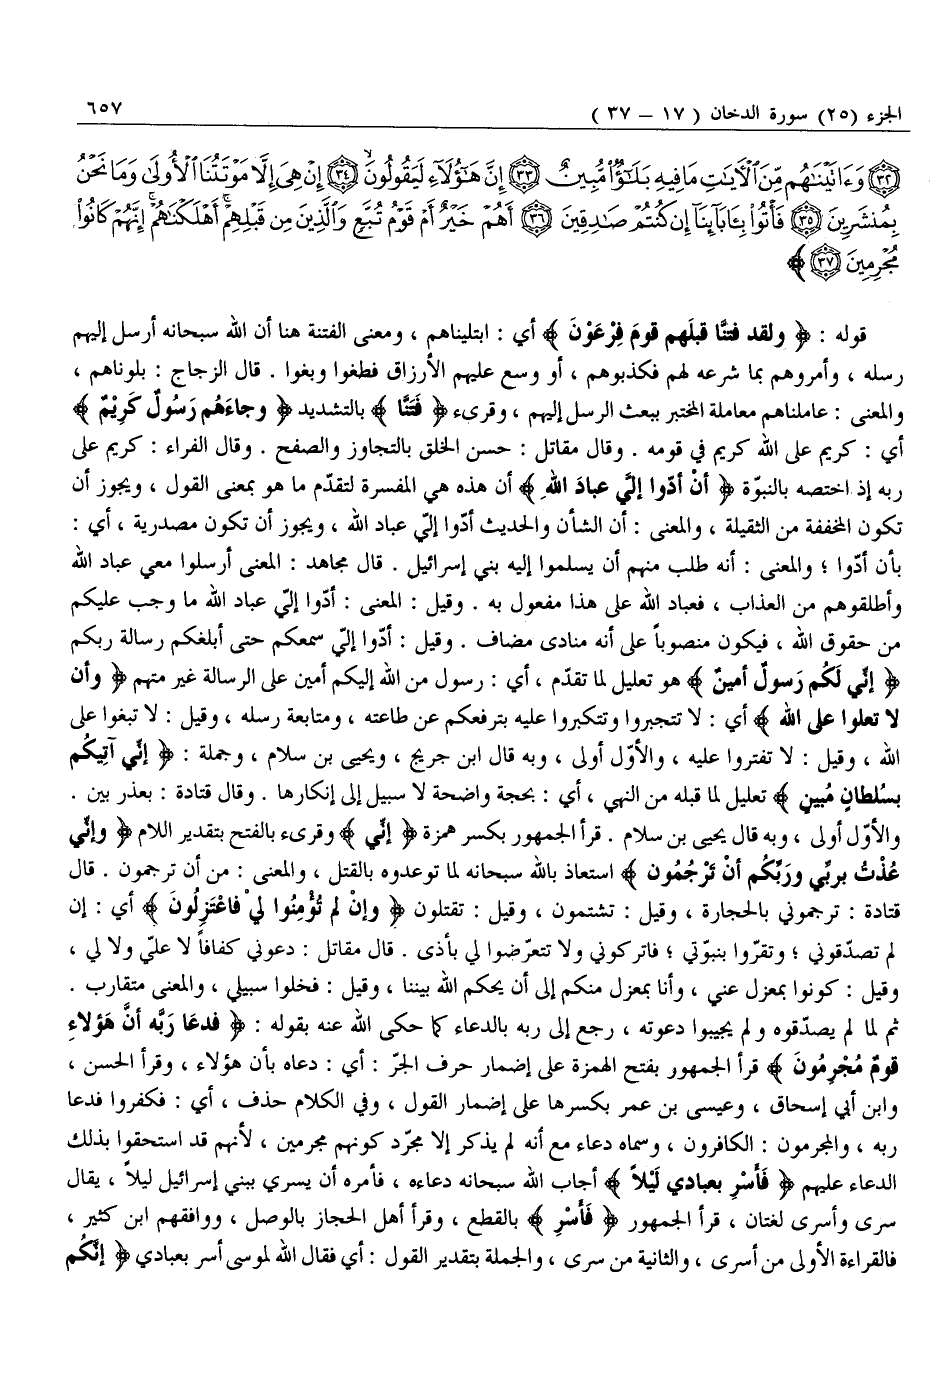 الجزء (٢٥) سورة الدخان ( ١٧ – ٣٧ ) ٦٥٧
٣٢ وَءَاتَيْنَٰهُم مِّنَ ٱلْءَايَٰتِ مَا فِيهِ بَلَٰٓؤٌا۟ مُّبِينٌ ٣٣ إِنَّ هَٰٓؤُلَآءِ لَيَقُولُونَ ٣٤ إِنْ هِىَ إِلَّا مَوْتَتُنَا ٱلْأُولَىٰ وَمَا نَحْنُ
بِمُنشَرِينَ ٣٥ فَأْتُوا۟ بِـَٔابَآئِنَآ إِن كُنتُمْ صَٰدِقِينَ ٣٦ أَهُمْ خَيْرٌ أَمْ قَوْمُ تُبَّعٍ وَٱلَّذِينَ مِن قَبْلِهِمْ ۚ أَهْلَكْنَٰهُمْ ۖ إِنَّهُمْ كَانُوا۟
مُجْرِمِينَ ٣٧ ﴾
قوله : ﴿ ولقد فتنَّا قبلَهم قومَ فِرْعَوْنَ ﴾ أي : ابتليناهم ، ومعنى الفتنة هنا أن الله سبحانه أرسل إليهم
رسله ، وأمروهم بما شرعه لهم فكذبوهم ، أو وسع عليهم الأرزاق فطغوا وبغوا . قال الزجاج : بلوناهم ،
والمعنى : عاملناهم معاملة المختبر ببعث الرسل إليهم ، وقرىء ﴿ فَتَنَّا ﴾ بالتشديد ﴿ وجاءَهم رَسُولٌ كَرِيْمٌ ﴾
أي : كريم على الله كريم في قومه . وقال مقاتل : حسن الخلق بالتجاوز والصفح . وقال الفراء : كريم على
ربه إذ اختصه بالنبوّة ﴿ أنْ أدّوا إليَّ عبادَ اللهِ ﴾ أن هذه هي المفسرة لتقدّم ما هو بمعنى القول ، ويجوز أن
تكون المخففة من الثقيلة ، والمعنى : أن الشأن والحديث أدّوا إليّ عباد الله ، ويجوز أن تكون مصدرية ، أي :
بأن أدّوا ؛ والمعنى : أنه طلب منهم أن يسلموا إليه بني إسرائيل . قال مجاهد : المعنى أرسلوا معي عباد الله
وأطلقوهم من العذاب ، فعباد الله على هذا مفعول به . وقيل : المعنى : أدّوا إليّ عباد الله ما وجب عليكم
من حقوق الله ، فيكون منصوباً على أنه منادى مضاف . وقيل : أدّوا إليّ سمعكم حتى أبلغكم رسالة ربكم
﴿ إنِّي لَكُم رَسولٌ أمينٌ ﴾ هو تعليل لما تقدّم ، أي : رسول من الله إليكم أمين على الرسالة غير متهم ﴿ وأن
لا تعلوا على الله ﴾ أي : لا تتجبروا وتتكبروا عليه بترفعكم عن طاعته ، ومتابعة رسله ، وقيل : لا تبغوا على
الله ، وقيل : لا تفتروا عليه ، والأوّل أولى ، وبه قال ابن جريج ، ويحيى بن سلام ، وجملة : ﴿ إنِّي آتِيكُم
بسُلطانٍ مُبينٍ ﴾ تعليل لما قبله من النهي ، أي : بحجة واضحة لا سبيل إلى إنكارها . وقال قتادة : بعذر بين .
والأوّل أولى ، وبه قال يحيى بن سلام . قرأ الجمهور بكسر همزة ﴿ إنِّي ﴾ وقرىء بالفتح بتقدير اللام ﴿ وإنِّي
عُذْتُ بربِّي وربِّكُم أنْ تَرْجُمُون ﴾ استعاذ بالله سبحانه لما توعدوه بالقتل ، والمعنى : من أن ترجمون . قال
قتادة : ترجموني بالحجارة ، وقيل : تشتمون ، وقيل : تقتلون ﴿ وإنْ لم تُؤْمِنُوا ليْ فاعْتَزِلُونَ ﴾ أي : إن
لم تصدّقوني ؛ وتقرّوا بنبوّتي ؛ فاتركوني ولا تتعرّضوا لي بأذى . قال مقاتل : دعوني كفافاً لا عليّ ولا لي ،
وقيل : كونوا بمعزل عني ، وأنا بمعزل منكم إلى أن يحكم الله بيننا ، وقيل : فخلوا سبيلي ، والمعنى متقارب .
ثم لما لم يصدّقوه ولم يجيبوا دعوته ، رجع إلى ربه بالدعاء كما حكى الله عنه بقوله : ﴿ فدعَا رَبَّه أنَّ هَؤلاءِ
قومٌ مُجْرِمُونَ ﴾ قرأ الجمهور بفتح الهمزة على إضمار حرف الجرّ : أي : دعاه بأن هؤلاء ، وقرأ الحسن ،
وابن أبي إسحاق ، وعيسى بن عمر بكسرها على إضمار القول ، وفي الكلام حذف ، أي : فكفروا فدعا
ربه ، والمجرمون : الكافرون ، وسماه دعاء مع أنه لم يذكر إلا مجرّد كونهم مجرمين ، لأنهم قد استحقوا بذلك
الدعاء عليهم ﴿ فَأَسْرِ بعبادي لَيْلاً ﴾ أجاب الله سبحانه دعاءه ، فأمره أن يسري ببني إسرائيل ليلاً ، يقال
سرى وأسرى لغتان ، قرأ الجمهور ﴿ فَأَسْرِ ﴾ بالقطع ، وقرأ أهل الحجاز بالوصل ، ووافقهم ابن كثير ،
فالقراءة الأولى من أسرى ، والثانية من سرى ، والجملة بتقدير القول : أي فقال الله لموسى أسر بعبادي ﴿ إنَّكُم